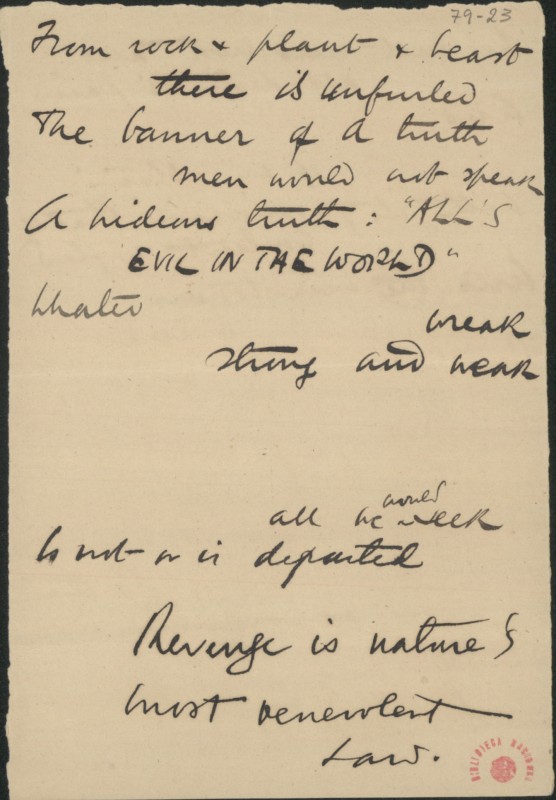 79-23
From rock & plant & beast
there is unfurled
The banner of a truth
men would not speak
A hideous truth: "ALL'S
EVIL IN THE WORLD"
Whate'
wreak
strong and weak
would
all we seek
Is not or is departed
Revenge is nature's
most benevolent
Law.
BIBLIOTECA NACIONAL